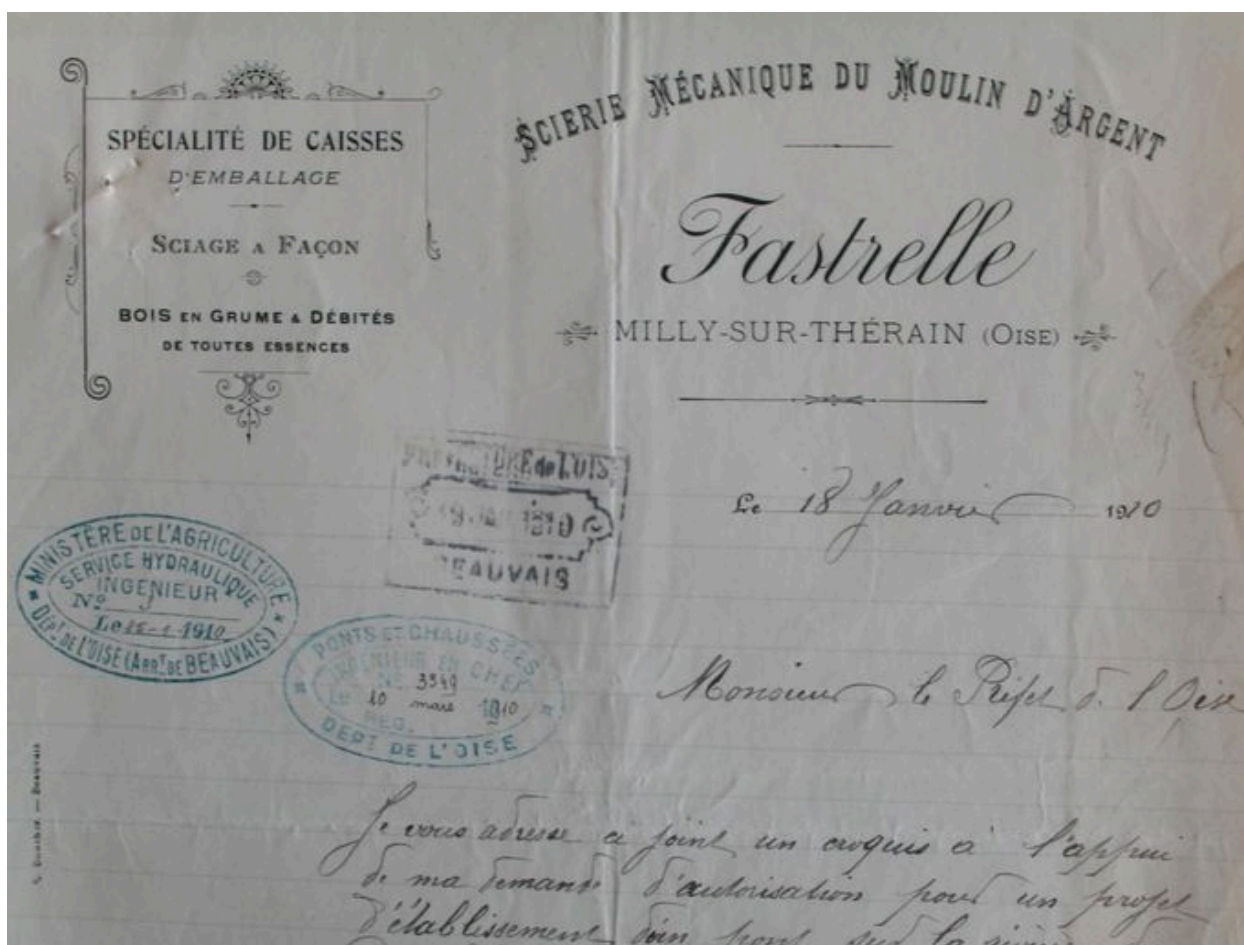 SPÉCIALITÉ DE CAISSES
D'EMBALLAGE
SCIAGE A FAÇON
BOIS EN GRUME & DÉBITÉS
DE TOUTES ESSENCES
SCIERIE MÉCANIQUE DU MOULIN D'ARGENT
Fastrelle
MILLY-SUR-THÉRAIN (OISE)
PRÉFECTURE de L'OISE
19 JAN 1910
BEAUVAIS
Le 18 Janvier 1910
MINISTÈRE DE L'AGRICULTURE
SERVICE HYDRAULIQUE
INGENIEUR
No
Le 1910
DÉPT. DE L'OISE (ARRT. DE BEAUVAIS)
PONTS ET CHAUSSÉES
INGÉNIEUR EN CHEF
No 3549
Le 10 mars 1910
REG.
DEPT DE L'OISE
Monsieur le Préfet de l'Oise
Beauvais
Je vous adresse ci joint un croquis à l'appui
de ma demande d'autorisation pour un projet
d'établissement d'un pont sur la